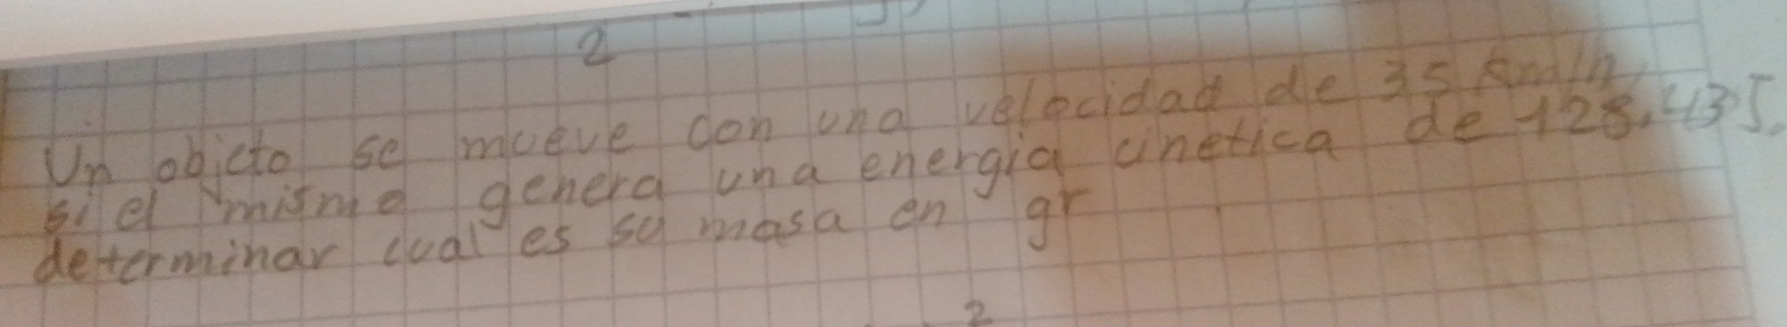 2
Un objeto se mueve con una velocidad de 35 km/h,
si el mismo genera una energia cinetica de 128,43J.
determinar cual es su masa en gr
2